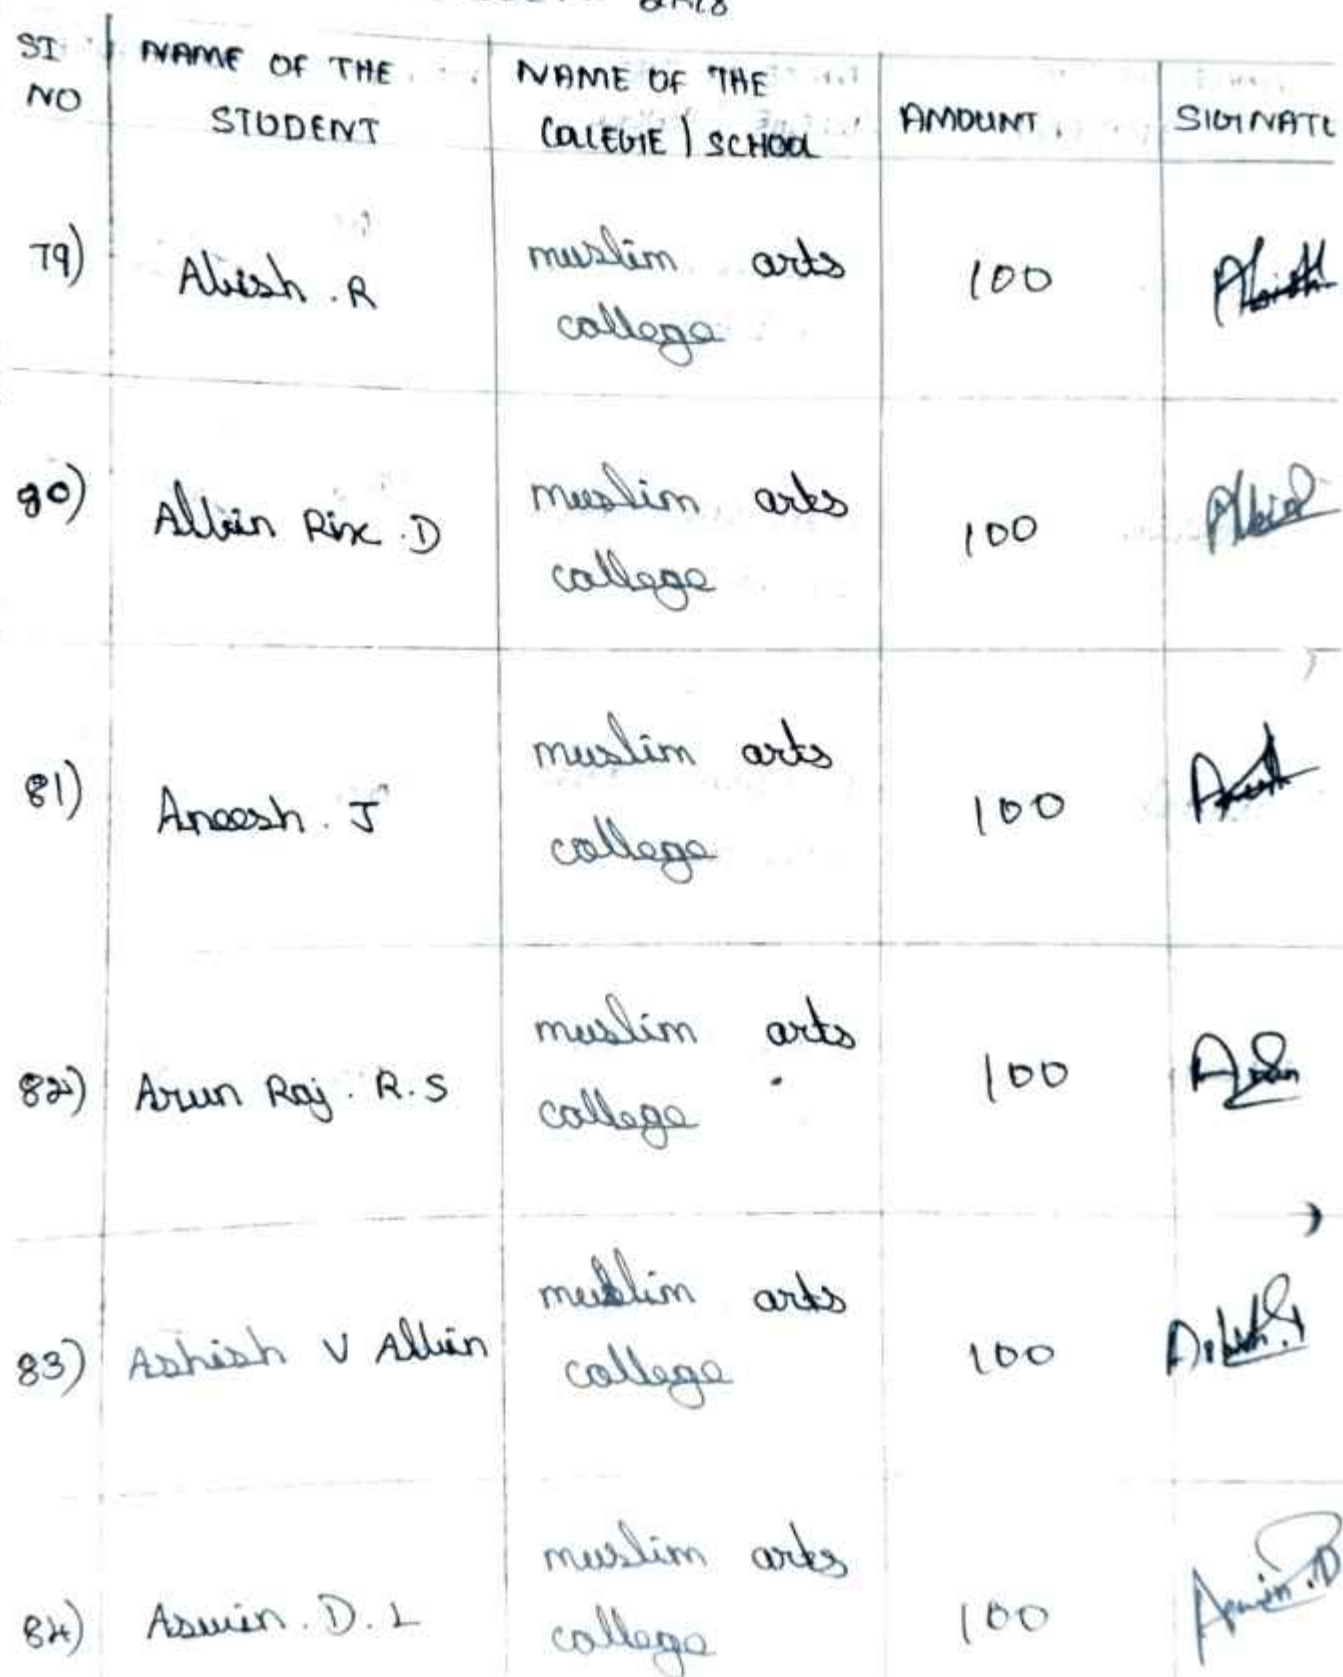 SI NO
NAME OF THE STUDENT
NAME OF THE COLLEGE | SCHOOL
AMOUNT
SIGNATU
79)
Abish . R
muslim arts
college
100
80)
Albin Rix . D
muslim arts
college
100
81)
Aneesh . J
muslim arts
college
100
82)
Arun Raj . R.S
muslim arts
college
100
83)
Ashish V Albin
muslim arts
college
100
84)
Aswin . D. L
muslim arts
college
100